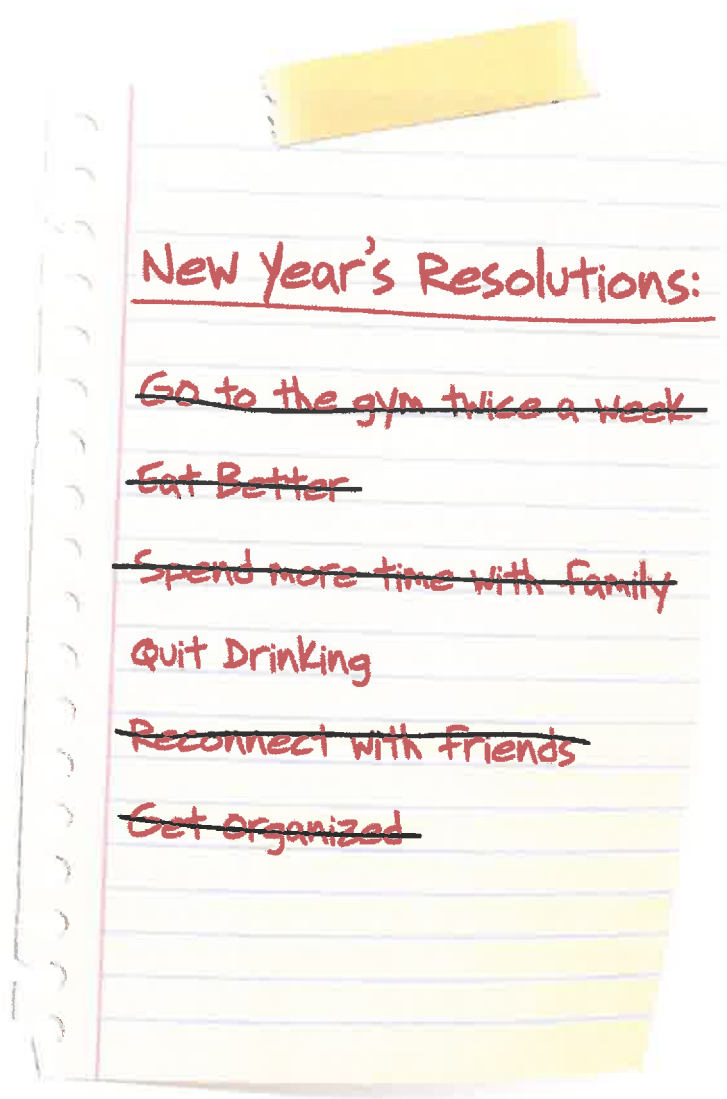 New Year's Resolutions:
Go to the gym twice a week
Eat Better
Spend more time with family
Quit Drinking
Reconnect with friends
Get organized